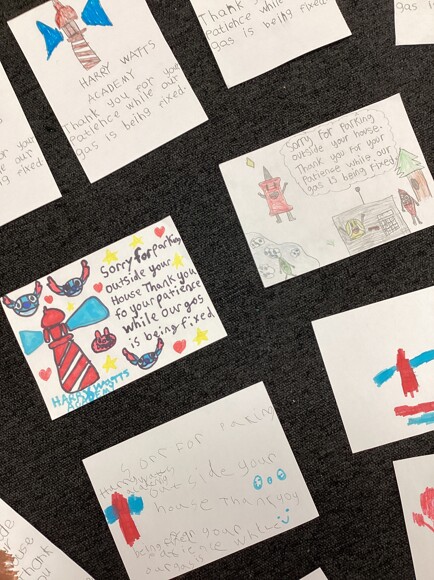 HARRY WATTS
ACADEMY
Thank you for you
patience while our
gas is being fixed.
Thank
patience while our
gas is being fixed
Sorry for parking
outside your house.
Thank you for your
Patience while our
gas is being fixed
Sorry for parking
outside your
House Thank you
fo your patience
while our gas
is being fixed
HARRY WATTS
ACADEMY
for you
our
fixed
Sorr For Paking
out side your
house Thank you
your
while
our gas is
being